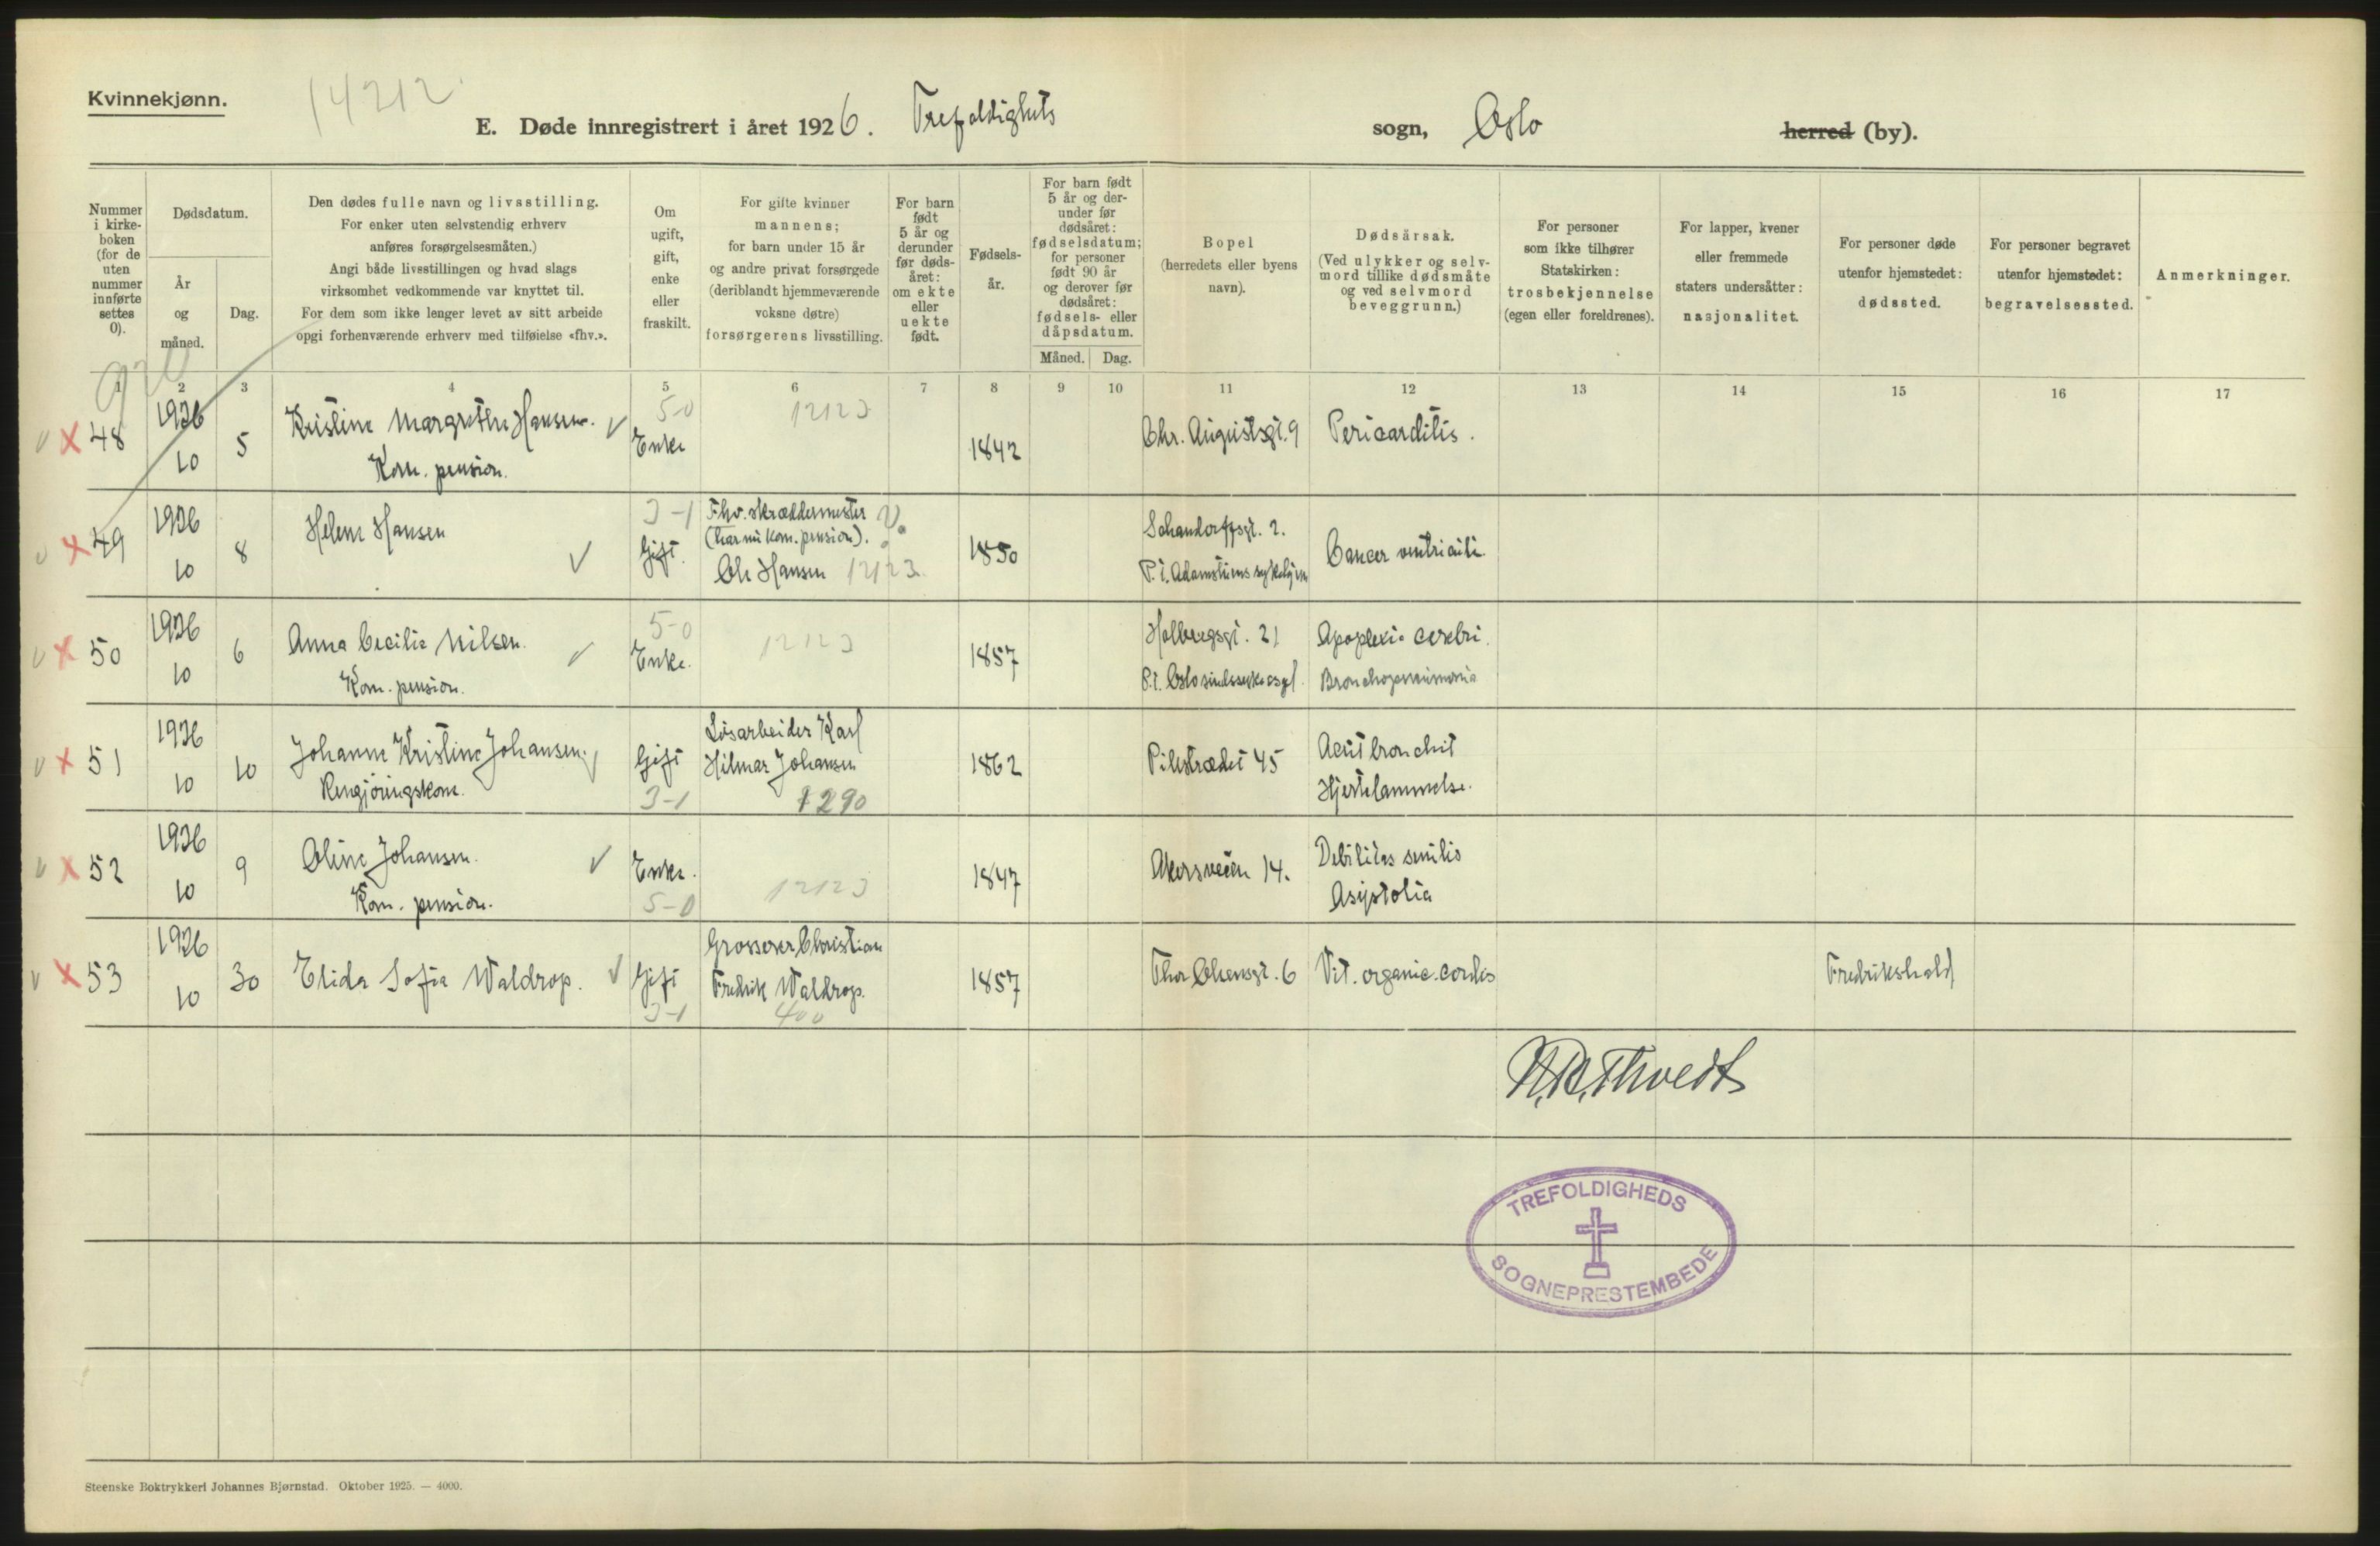 Kvinnekjønn.
14212
E. Døde innregistrert i året 1926. Trefoldighets sogn, Oslo herred (by).
Nummer i kirke-boken (for de uten nummer innførte settes 0).
Dødsdatum.
År og måned.
Dag.
Den dødes fulle navn og livsstilling.
For enker uten selvstendig erhverv
anføres forsørgelsesmåten.)
Angi både livsstillingen og hvad slags
virksomhet vedkommende var knyttet til.
For dem som ikke lenger levet av sitt arbeide
opgi forhenværende erhverv med tilføielse «fhv.».
Om ugift, gift, enke eller fraskilt.
For gifte kvinner
mannens;
for barn under 15 år
og andre privat forsørgede
(deriblandt hjemmeværende
voksne døtre)
forsørgerens livsstilling.
For barn født 5 år og derunder før døds-året: om ekte eller uekte født.
Fødsels-år.
For barn født 5 år og der-under før dødsåret: fødselsdatum; for personer født 90 år og derover før dødsåret: fødsels- eller dåpsdatum.
Måned. Dag.
Bopel
(herredets eller byens
navn).
Dødsårsak.
(Ved ulykker og selv-
mord tillike dødsmåte
og ved selvmord
beveggrunn.)
For personer
som ikke tilhører
Statskirken:
trosbekjennelse
(egen eller foreldrenes).
For lapper, kvener
eller fremmede
staters undersåtter:
nasjonalitet.
For personer døde
utenfor hjemstedet:
dødssted.
For personer begravet
utenfor hjemstedet:
begravelsessted.
Anmerkninger.
1 2 3 4 5 6 7 8 9 10 11 12 13 14 15 16 17
48 1926 10 5 Kristine Margrethe Hansen. Kom. pension. 5-0 Enke 12123 1842 Chr. Augustsgt. 9 Pericarditis.
49 1926 10 8 Helene Hansen 3-1 Gift. Fhv. skreddermester (har nu kom. pension). Ole Hansen 12123 1850 Schandorffsgt. 2. P.t. Adamstuens sykehjem Cancer ventriculi.
50 1926 10 6 Anna Cecilie Nilsen. Kom. pension. 5-0 Enke. 12123 1857 Holbergsgt. 21 P.t. Oslo sindssykeasyl. Apoplexia cerebri. Bronchopneumonia
51 1926 10 10 Johanne Kristine Johansen. Rengjøringskone. Gift 3-1 Løsarbeider Karl Hilmar Johansen 1290 1862 Pilestrædet 45 Acut bronchit Hjertelammelse.
52 1926 10 9 Oline Johansen. Kom. pension. Enke. 5-0 12123 1847 Akersveien 14. Debilitas senilis Asystolia
53 1926 10 30 Elida Sofia Waldrop. Gift 3-1 Grosserer Christian Fredrik Waldrop. 400 1857 Thor Olsensgt. 6 Vit. organic. cordis Fredrikshald
TREFOLDIGHEDS
SOGNEPRESTEMBEDE
Steenske Boktrykkeri Johannes Bjørnstad. Oktober 1925. — 4000.